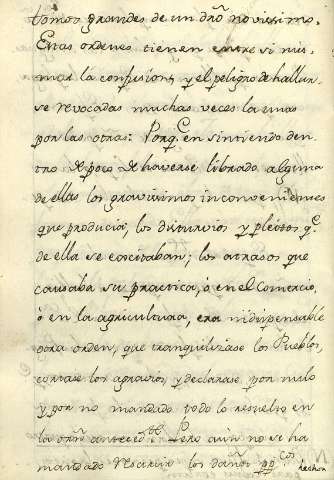 tomos grandes de un dro̅ novissimo.
Estas ordenes tienen entre si mis-
mas la confusion, y el peligro de hallar-
se revocadas muchas veces las unas
por las otras. Porq.e en sintiendo den-
tro de poco de haverse librado alguna
de ellas los gravissimos inconvenientes
que producia, los disturvios y pleitos q.e
de ella se excitaban; los atrasos que
causaba su practica, ò en el Comercio,
ò en la agricultura, era indispensable
otra orden, que tranquilizase los Pueblos,
cortase los agravios, y declarase por nulo
y por no mandado todo lo resuelto en
la orn̅ anteced.te Pero aun no se ha
mandado resarcir los daños pp.cos
hechos